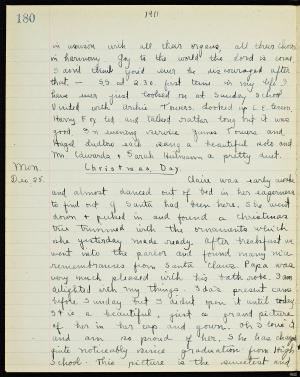 180
1911
in unison with all their organs, all their choirs
in harmony Joy to the world the Lord is come
I don't think you'd ever be discouraged after
that — SS at 2.30. first time in my life I
have ever just looked on at Sunday School
Visited with Archie Towers. looked up L.E.
Harry Foy led and talked rather long but it was
good. In evening service James Towers and
Hugel sang a beautiful solo and
Mr Edwards & Sarah a pretty duet.
Mon.
Christmas Day.
Dec 25.
Claire was early awake
and almost danced out of bed in her eagerness
to find out if Santa had been here. She went
down & peeked in and found a Christmas
tree trimmed with the ornaments which
she yesterday made ready. After breakfast we
went into the parlor and found many nice
remembrances from Santa Claus. Papa was
very much pleased with his bath robe. I am
delighted with my things. Ida's present came
before Sunday but I didn't open it until today.
It is a beautiful, just a grand picture
of her in her cap and gown. Oh I love it
and am so proud of her. She has changed
quite noticeably since graduation from High
School. This picture is the sweetest and